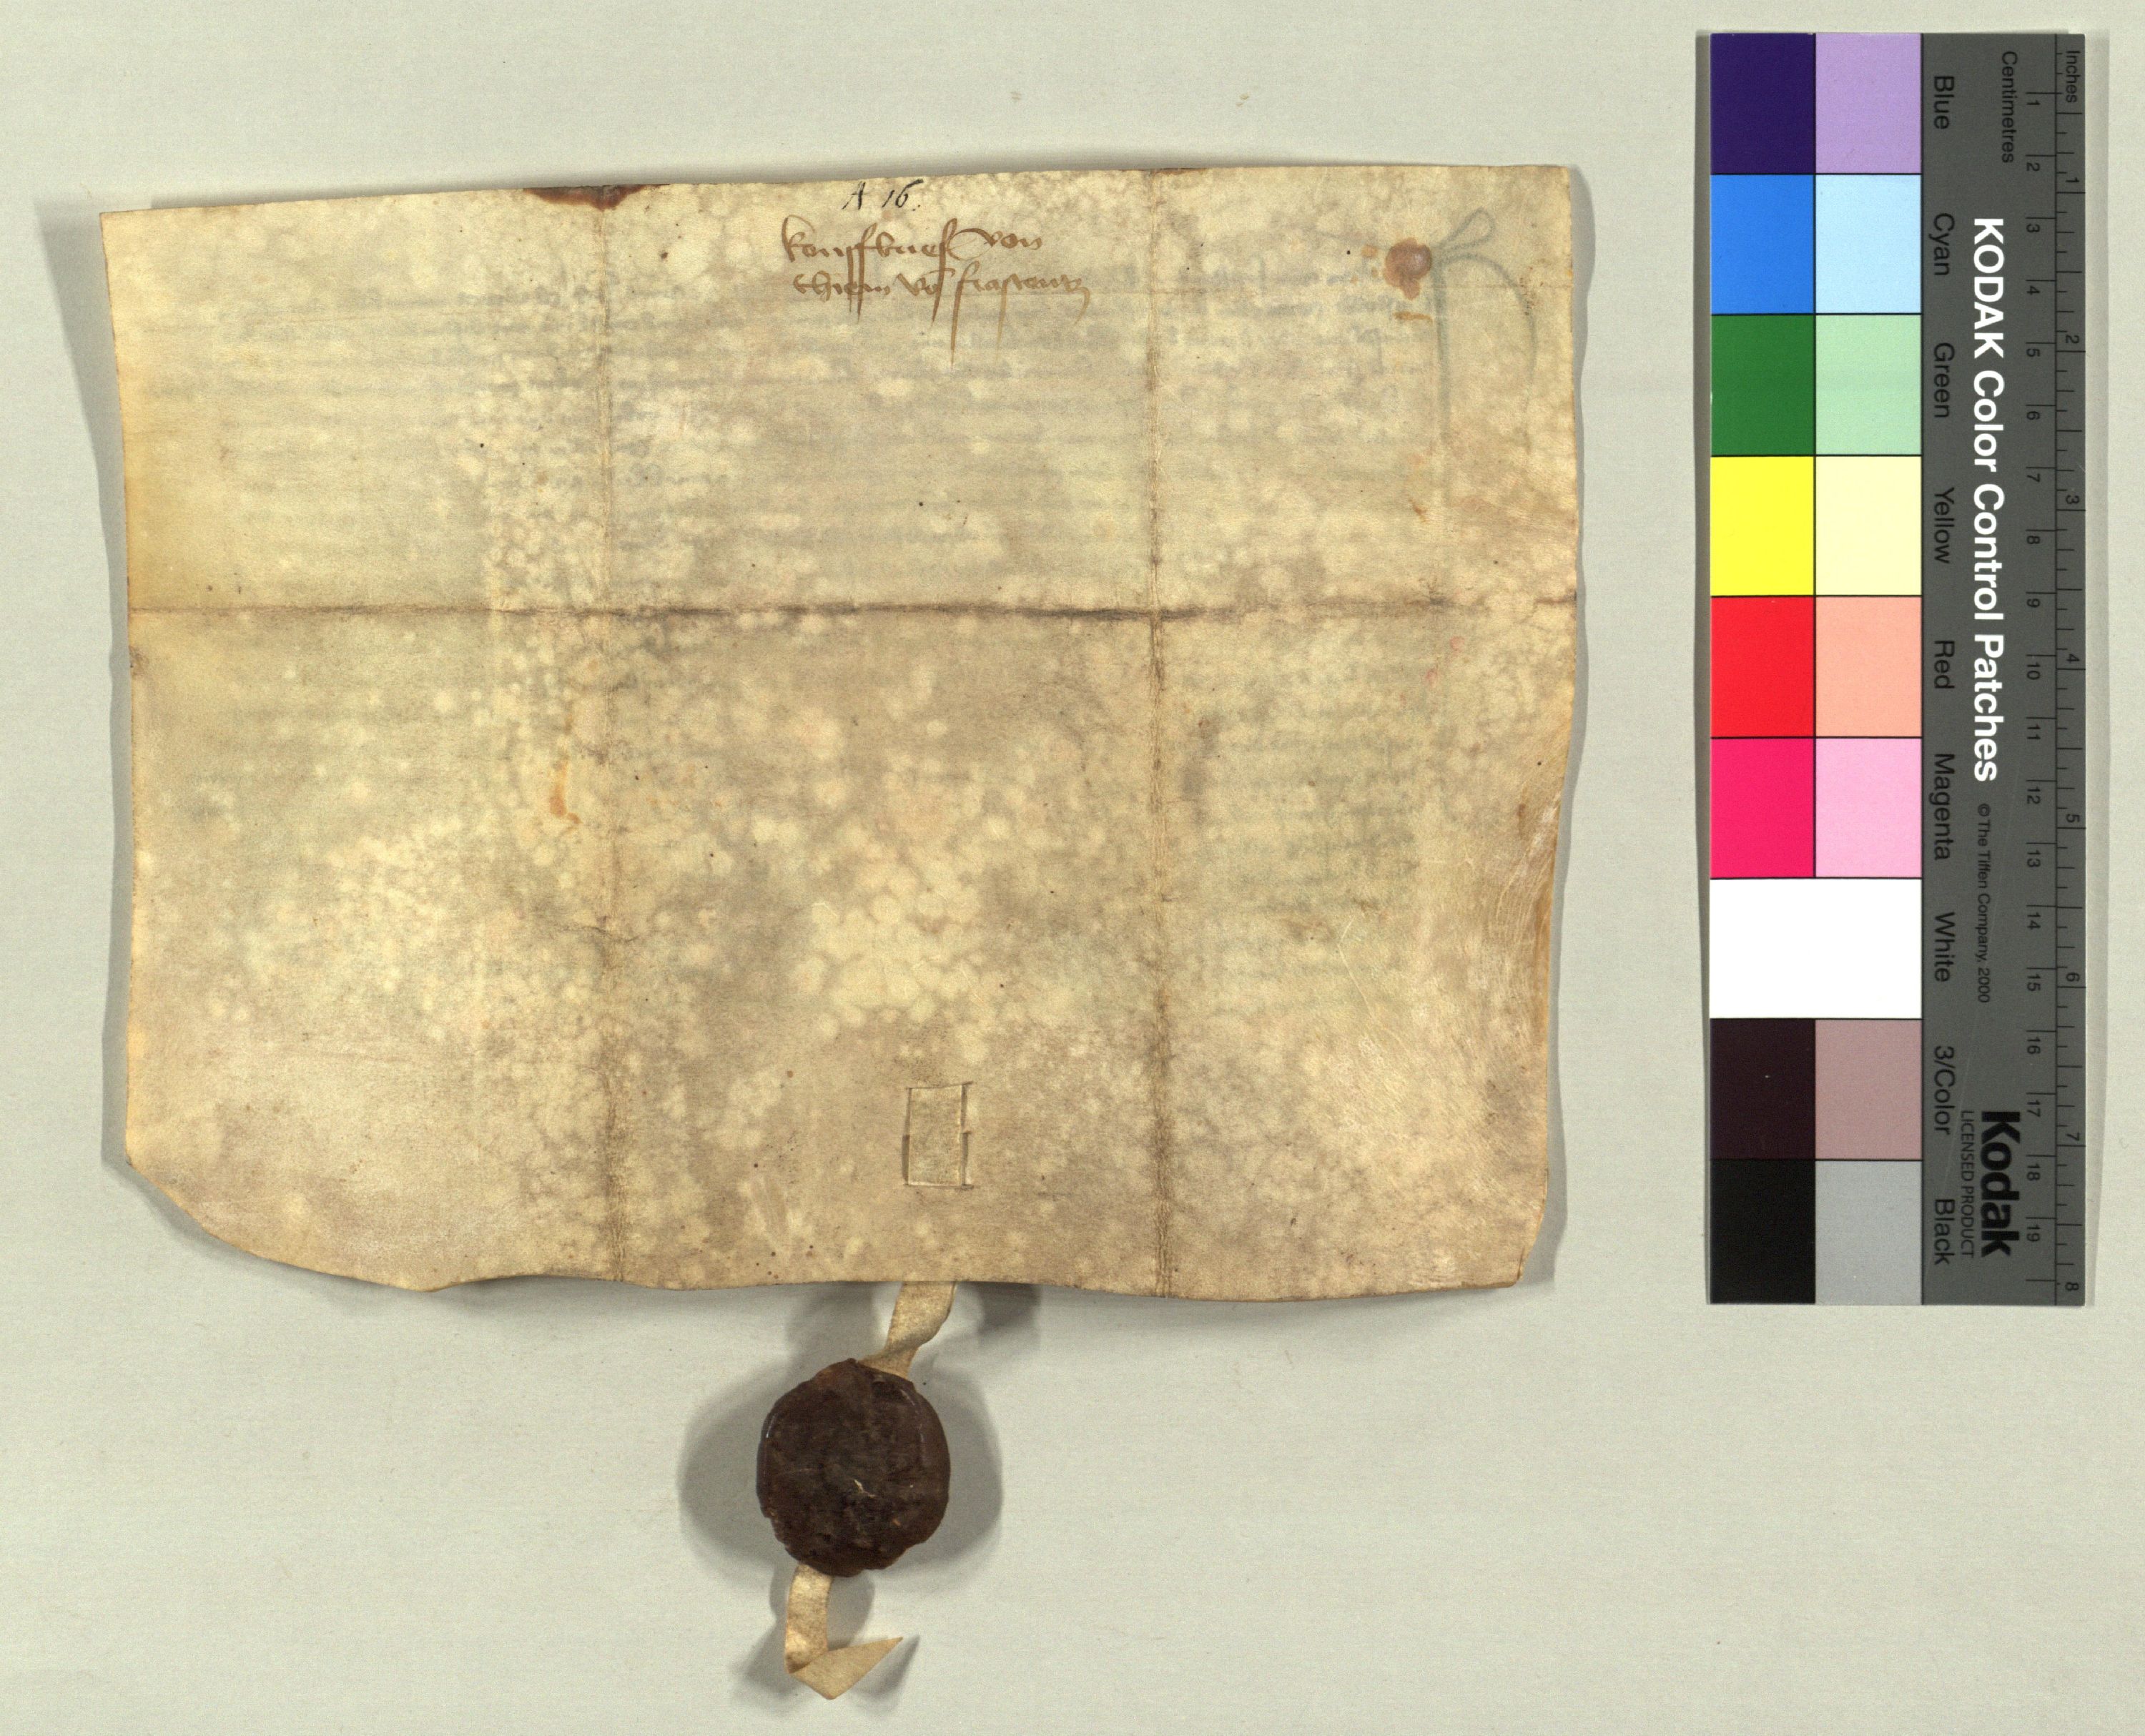 A 16.
kouffbrief von
thiem vō frastentz
Inches
Centimetres
1 2 3 4 5 6 7 8
1 2 3 4 5 6 7 8 9 10 11 12 13 14 15 16 17 18 19
KODAK Color Control Patches © The Tiffen Company, 2000
Kodak
LICENSED PRODUCT
Blue
Cyan
Green
Yellow
Red
Magenta
White
3/Color
Black